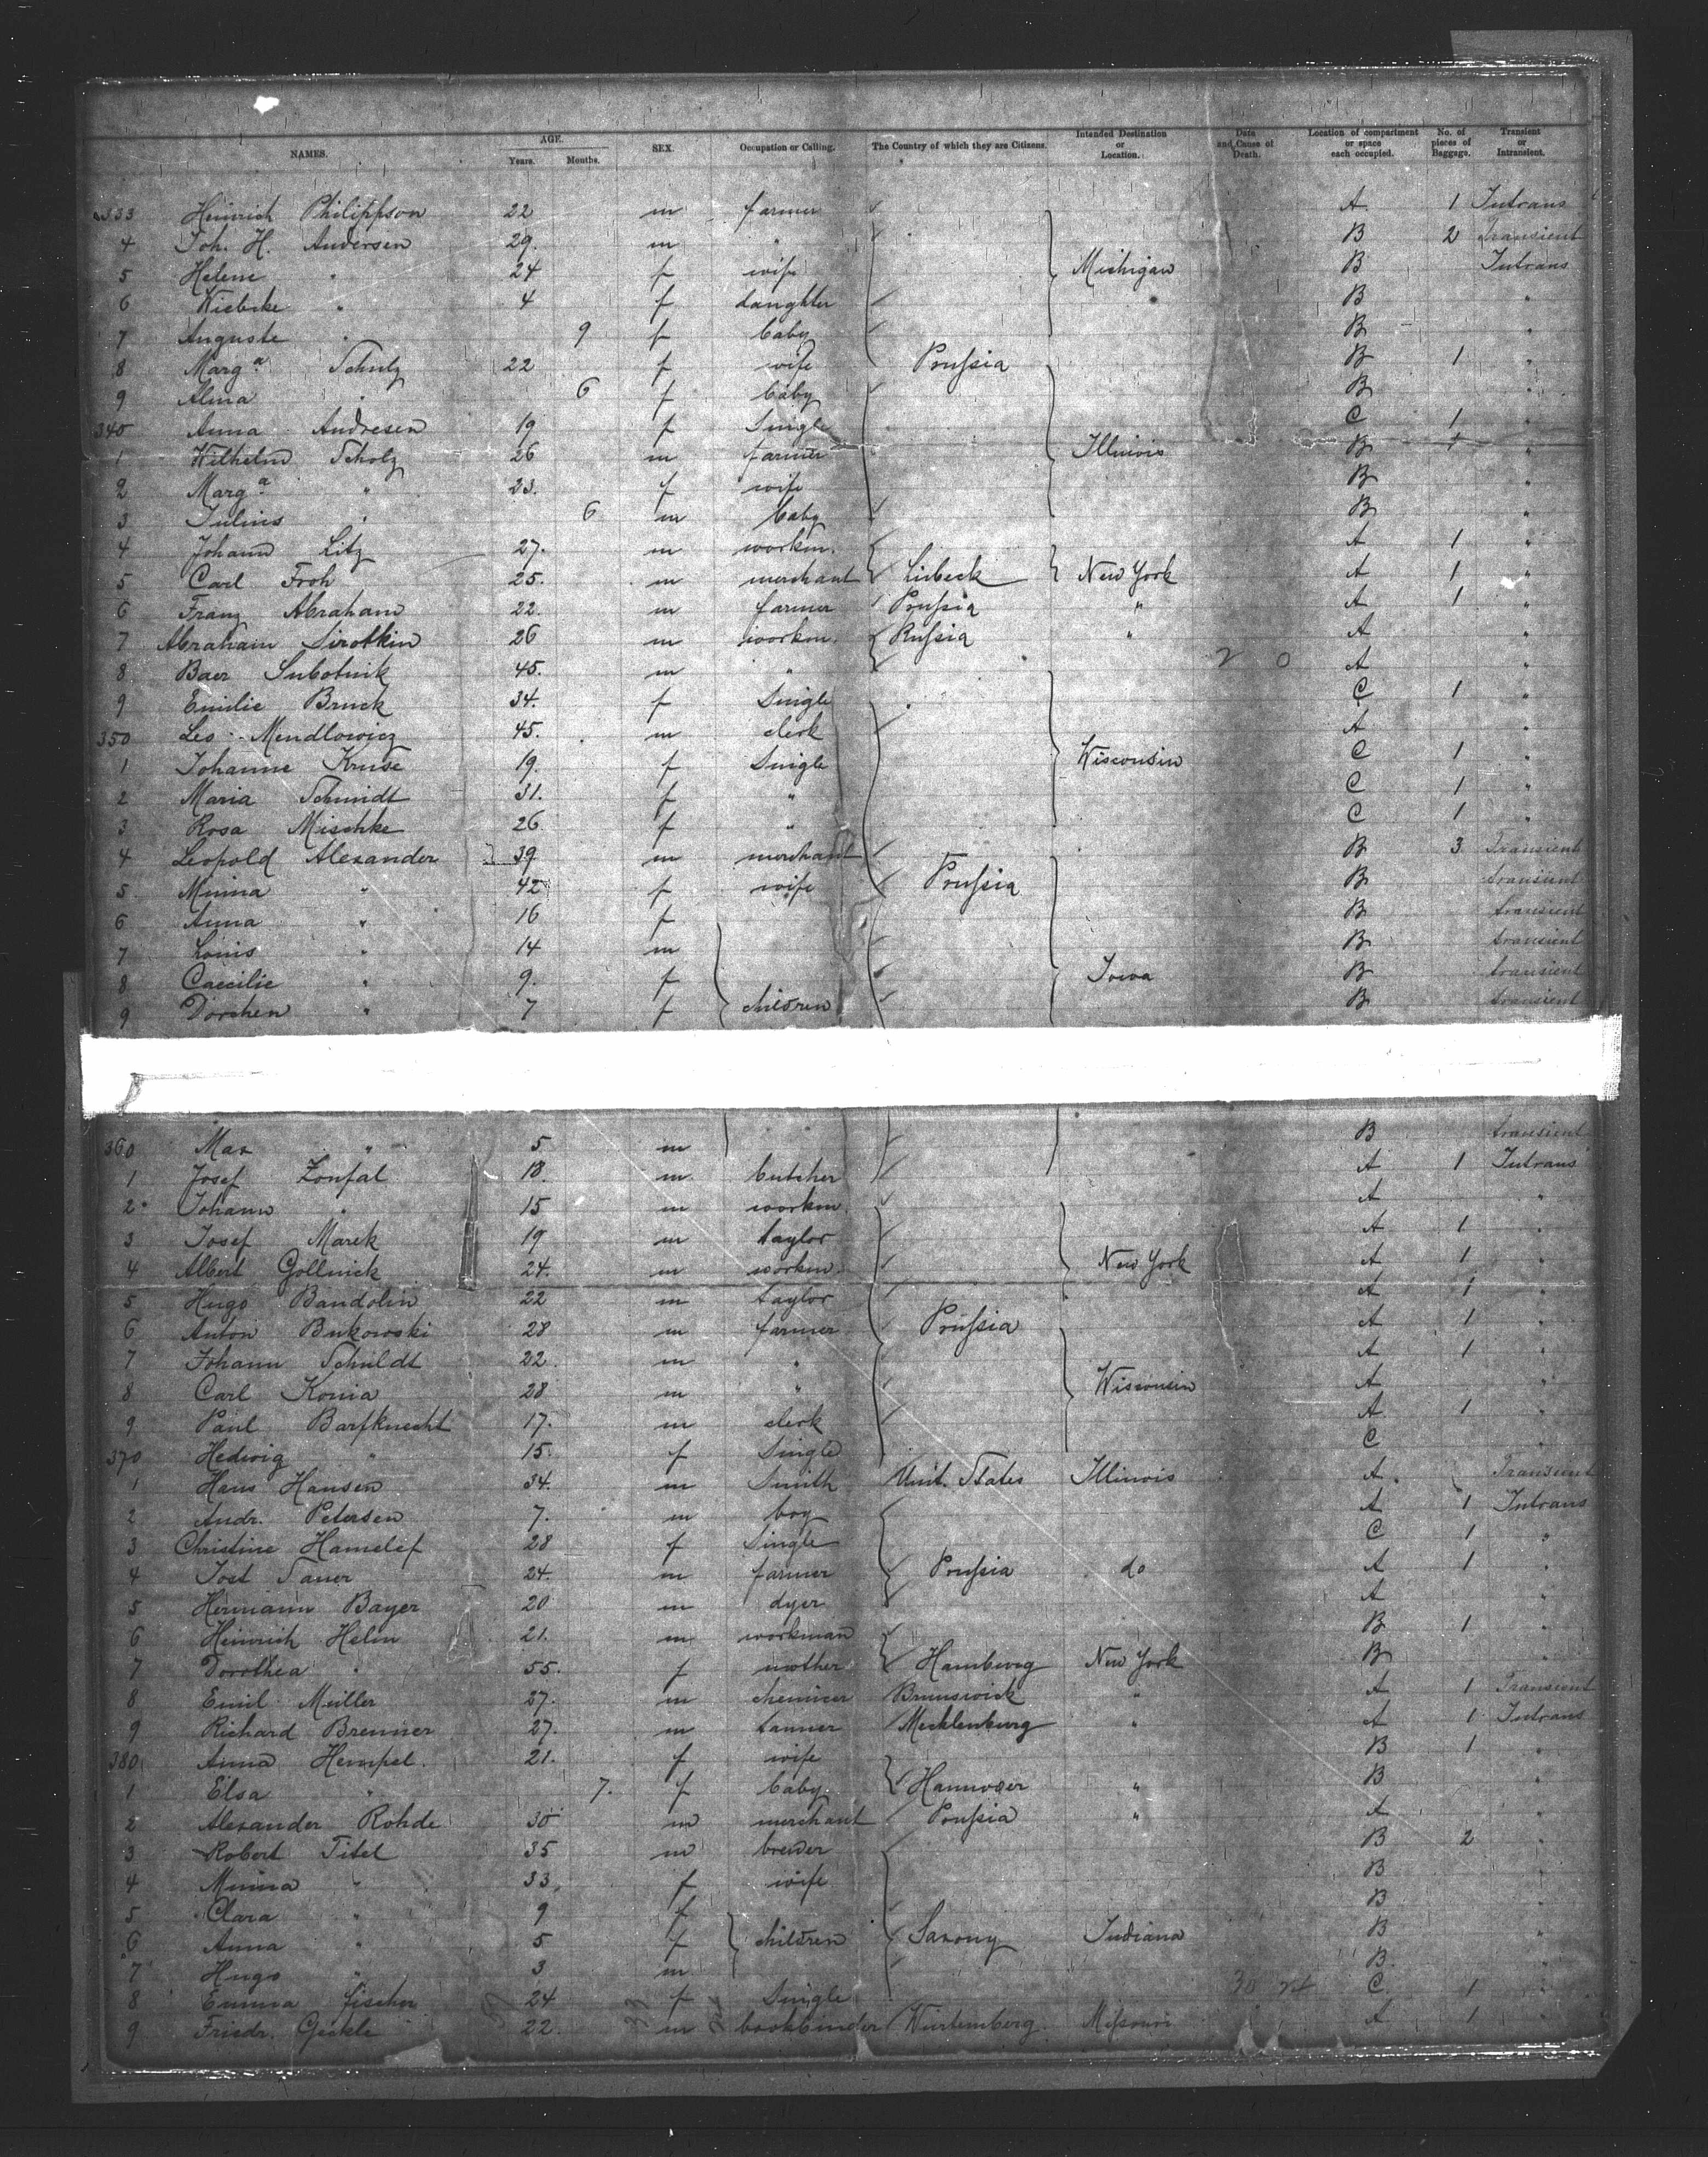 NAMES. AGE. Years. Months. SEX. Occupation or Calling. The Country of which they are Citizens. Intended Destination or Location. Date and Cause of Death. Location of compartment or space each occupied. No. of pieces of Baggage. Transient or Intransient.
333 Heinrich Philippson 22 m farmer A 1 Intrans
4 Joh. H. Andersen 29. m " B 2 Transient
5 Helene " 24 f wife Michigan B Intrans
6 Wiebcke " 4 f daughter B "
7 Auguste " 9 f baby B "
8 Marg.a Schulz 22 f wife Prussia B 1 "
9 Alma " 6 f baby B "
340 Anna Andresen 19 f Single C 1 "
1 Wilhelm Scholz 26 m farmer Illinois B 1 "
2 Marg.a " 23. f wife B "
3 Julius " 6 m baby B "
4 Johann Litz 27. m workm. A 1 "
5 Carl Froh 25. m merchant Lübeck New York A 1 "
6 Franz Abraham 22. m farmer Prussia " A 1 "
7 Abraham Sirotkin 26 m workm. Russia " A "
8 Baer Subotnik 45. m " 2 0 A "
9 Emilie Bruck 34. f Single C 1 "
350 Leo Mendlowicz 45. m clerk A "
1 Johanne Kruse 19. f Single Wisconsin C 1 "
2 Maria Schmidt 31. f " C 1 "
3 Rosa Mischke 26 f " C 1 "
4 Leopold Alexander 39 m merchant B 3 Transient
5 Minna " 42 f wife Prussia B transient
6 Anna " 16 f B transient
7 Louis " 14 m B transient
8 Caecilie " 9. f Iowa B transient
9 Dorchen " 7 f children B transient
360 Max " 5 m B transient
1 Josef Zoufal 18. m butcher A 1 Intrans
2 Johann " 15 m workm A "
3 Josef Marek 19 m taylor A 1 "
4 Albert Gollnick 24. m workm. New York A 1 "
5 Hugo Bandolin 22 m taylor A 1 "
6 Anton Bukowski 28 m farmer Prussia A 1 "
7 Johann Schildt 22 m " A 1 "
8 Carl Konia 28 m " Wisconsin A "
9 Paul Barfknecht 17. m clerk A 1 "
370 Hedwig " 15. f Single C "
1 Hans Hansen 34. m Smith Unit. States Illinois A. Transient
2 Andr. Petersen 7. m boy A 1 Intrans
3 Christine Hamelef 28 f Single C 1 "
4 Jost Sauer 24. m farmer Prussia do A 1 "
5 Hermann Bayer 20 m dyer A "
6 Heinrich Helm 21. m workman B 1 "
7 Dorothea " 55. f mother Hamburg New York B "
8 Emil Müller 27. m chemicer Brunswick " A 1 Transient
9 Richard Brenner 27. m tanner Mecklenburg " A 1 Intrans
380 Anna Hempel. 21. f wife B 1 "
1 Elsa " 7. f baby Hannover " B "
2 Alexander Rohde 30 m merchant Prussia " A "
3 Robert Titel 35 m brewer B 2 "
4 Minna " 33, f wife B "
5 Clara " 9 f B "
6 Anna " 5 f children Saxony Indiana B "
7 Hugo " 3 m B. "
8 Emma Fischer 24 f Single C 1 "
9 Friedr. Geckle 22. m bookbinder Würtemberg Missouri A 1 "